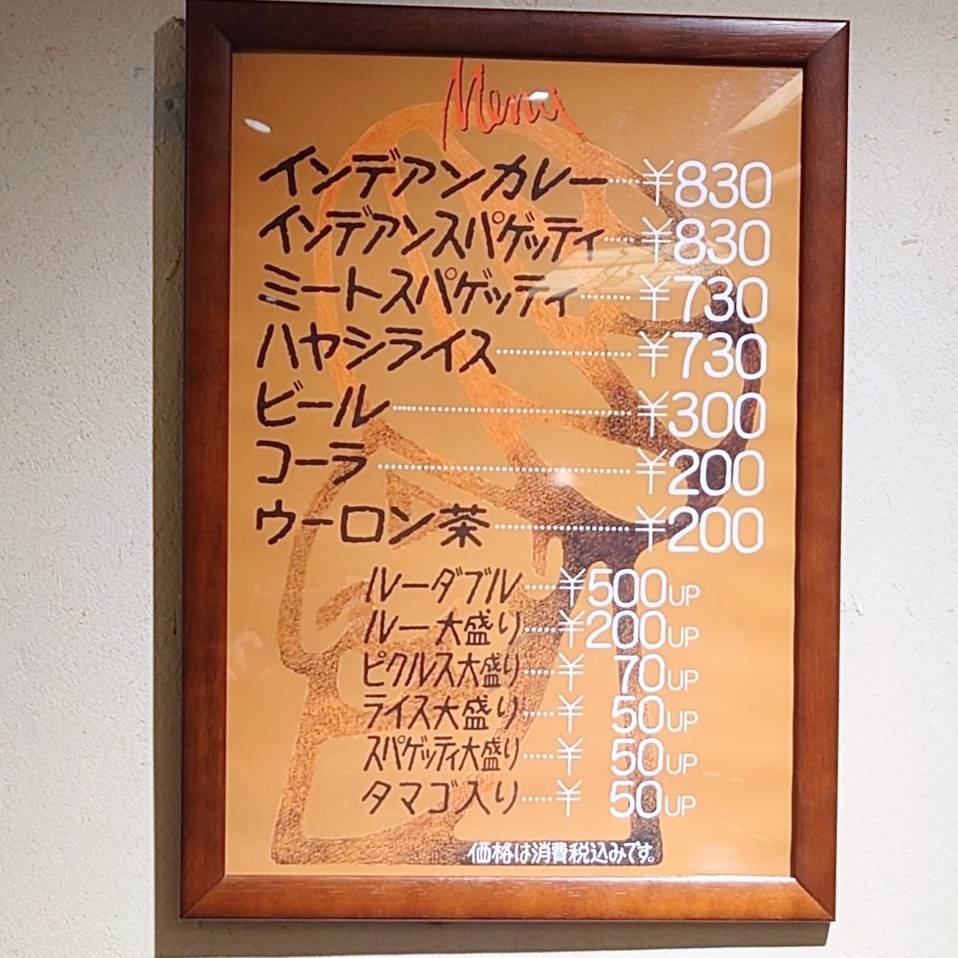 Menu
インデアンカレー……¥830
インデアンスパゲッティ……¥830
ミートスパゲッティ……¥730
ハヤシライス……¥730
ビール……¥300
コーラ……¥200
ウーロン茶……¥200
ルーダブル……¥500UP
ルー大盛り……¥200UP
ピクルス大盛り……¥70UP
ライス大盛り……¥50UP
スパゲッティ大盛り……¥50UP
タマゴ入り……¥50UP
価格は消費税込みです。